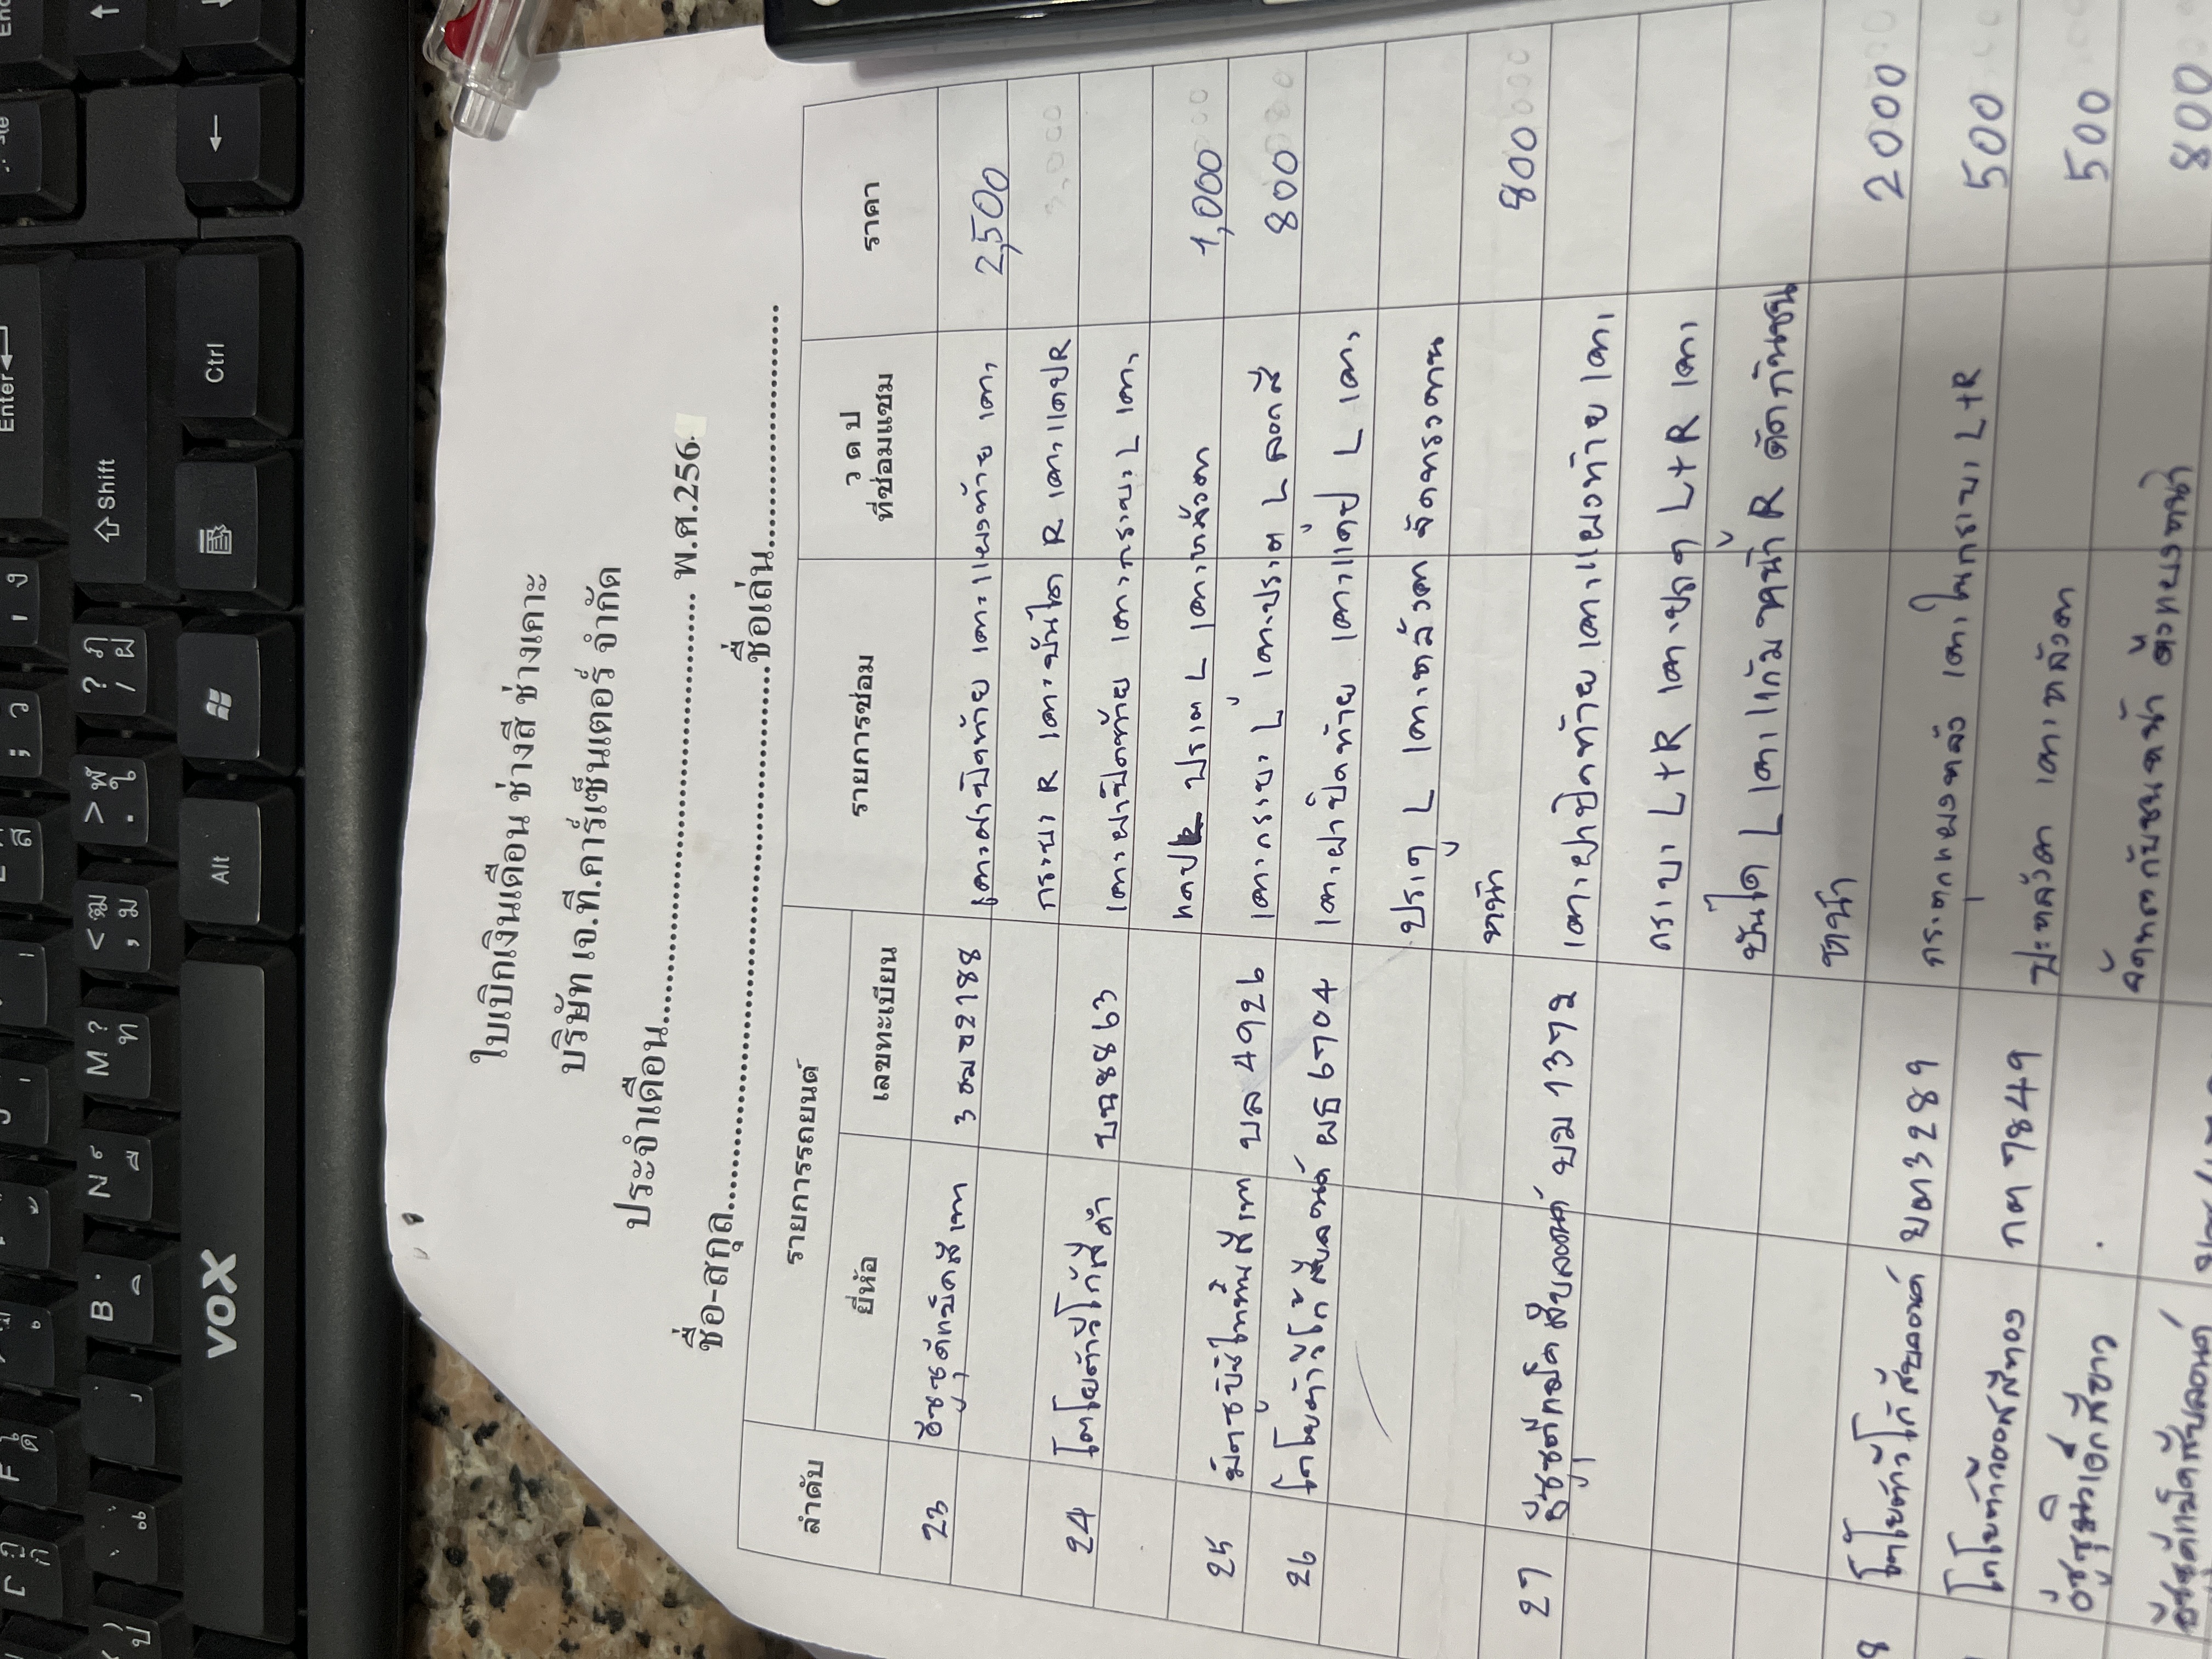 ใบเบิกเงินเดือน ช่างสี ช่างเคาะ
บริษัท เจ.ที.คาร์เซ็นเตอร์ จำกัด
ประจำเดือน.................................................. พ.ศ.256
ชื่อ-สกุล..................................................ชื่อเล่น..............................
ลำดับ รายการรถยนต์ รายการซ่อม ว ด ป ที่ซ่อมแซม ราคา
ยี่ห้อ เลขทะเบียน
23 อีซูซุดีแม็คสีเทา 3ฒฆ2188 เคาะฝาปิดท้าย เคาะแผงท้าย เคาะ 2,500
กระบะ R เคาะบันได R เคาะแคปR
24 โตโยต้าวีโก้สีดำ บน8863 เคาะฝาปิดท้าย เคาะกระบะ L เคาะ
แคป ประตู L เคาะหลังคา 1,000
25 มิตซูบิชิไททันสีเทา บล 4926 เคาะกระบะ L เคาะประตู L ลอกสี 800
26 โตโยต้าวีโก้สีบลอนด์ ผธ 6704 เคาะฝาปิดท้าย เคาะแค๊ป L เคาะ
ประตู L เคาะหลังคา จัดทรงคาน
หน้า 800
27 อีซูซุดีแม็คสีบลอนด์ บม 1372 เคาะฝาปิดท้าย เคาะแผงท้าย เคาะ
กระบะ L+R เคาะประตู L+R เคาะ
บันได L เคาะแก้มหน้า R ดัดกันชน
หน้า 2000
8 โตโยต้าวีโก้สีบลอนด์ บต3289 กระตุกแผงหลัง เคาะในกระบะ L+R 500
โตโยต้าวีออสสีทอง กต 7849 ปะหลังคา เคาะหลังคา 500
อีซูซุมิวเอ็กสีขาว จัดทรงกันชนหน้า คิ้วกันชนหน้า 800
อีซูซุดีแม็คสีบลอนด์
VOX
Enter
Shift
Ctrl
Alt